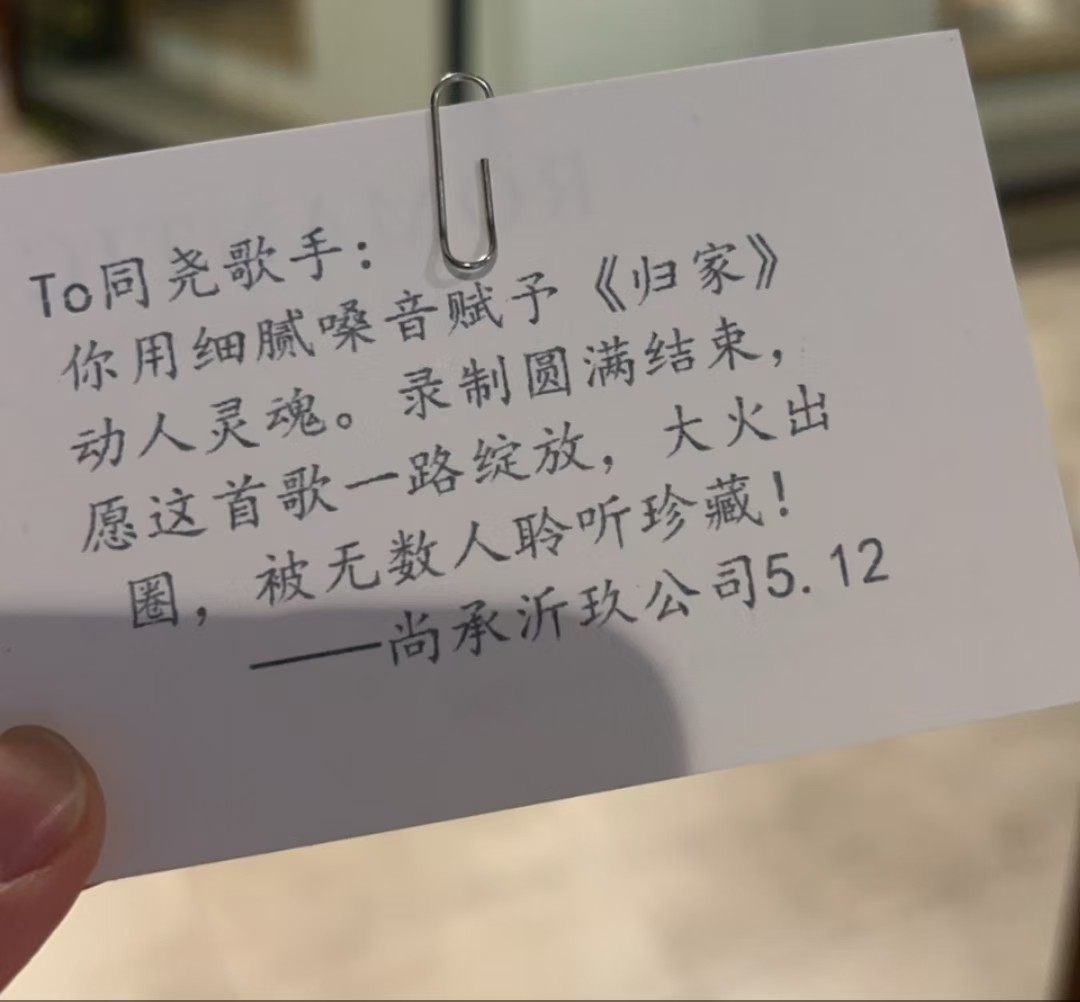 To同尧歌手：
你用细腻嗓音赋予《归家》
动人灵魂。录制圆满结束，
愿这首歌一路绽放，大火出
圈，被无数人聆听珍藏！
——尚承沂玖公司5.12